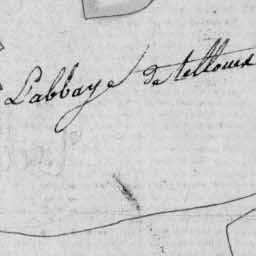 L'abbaye de tellouet